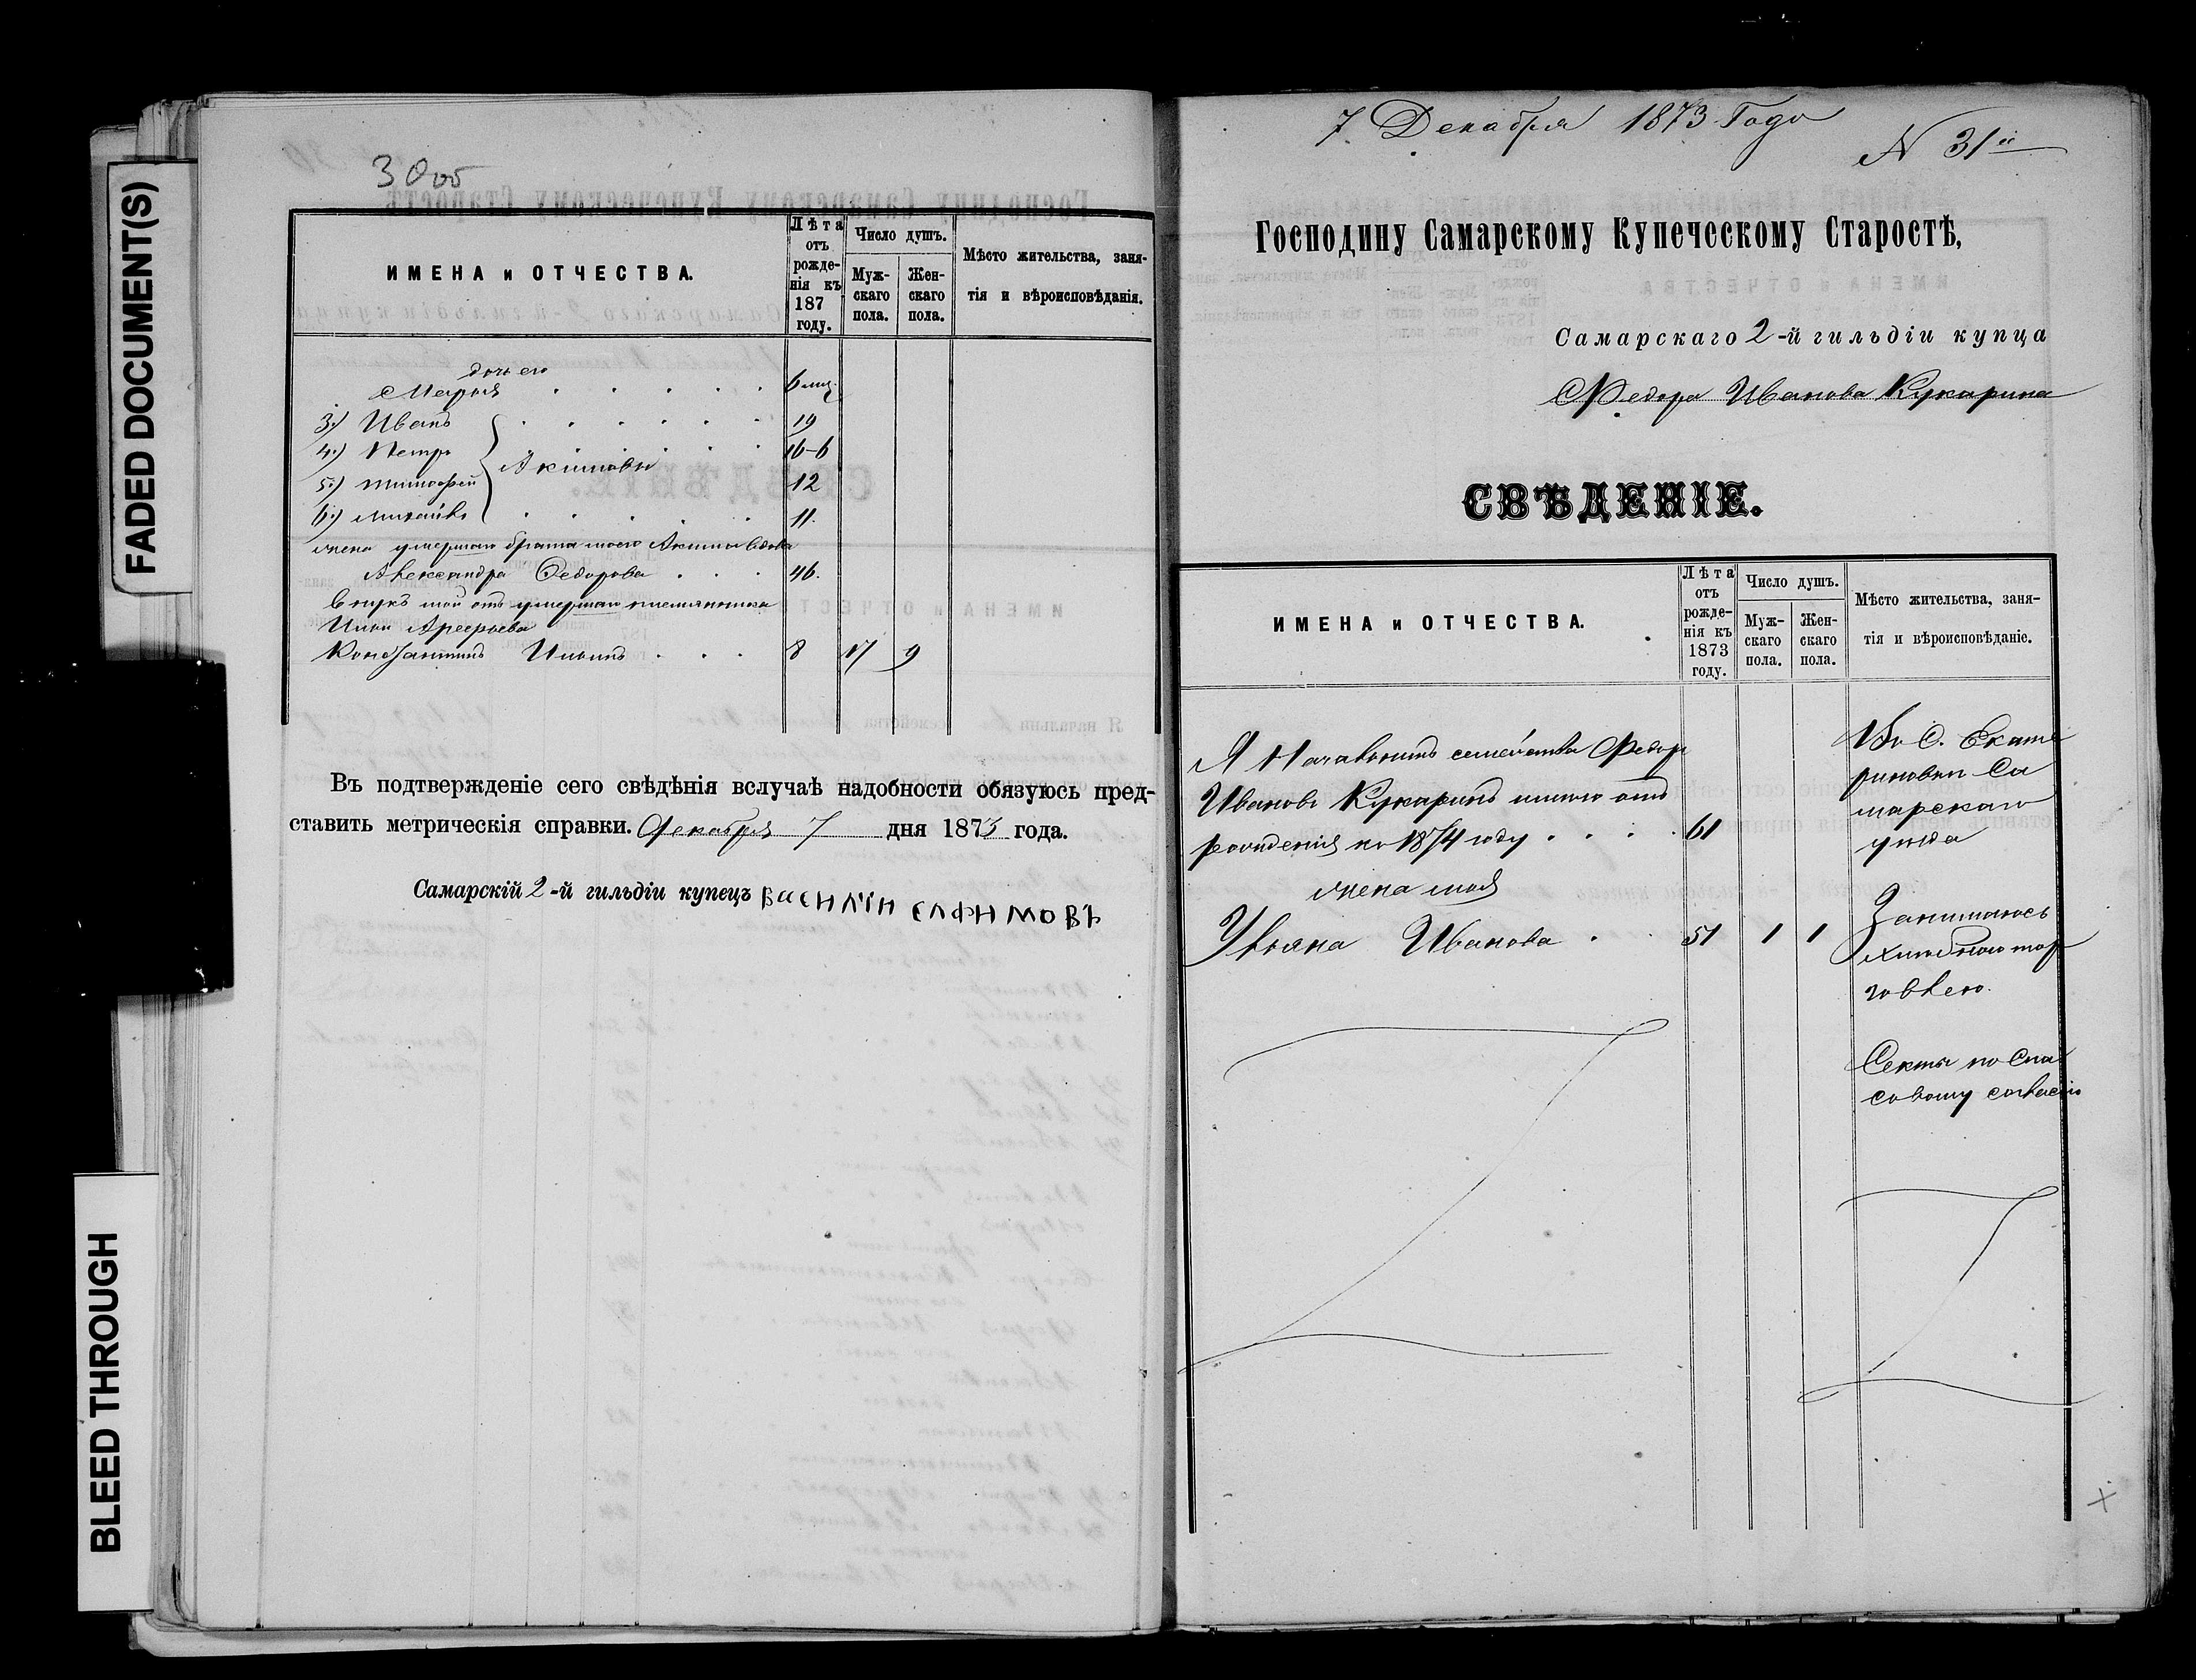 FADED DOCUMENT(S)
BLEED THROUGH
30об
ИМЕНА и ОТЧЕСТВА.
Лѣта отъ рожде-нія къ 187 году.
Число душъ.
Муж-скаго пола.
Жен-скаго пола.
Мѣсто жительства, заня-
тія и вѣроисповѣданія.
дочь его
Марья 6 мѣс.
3.) Иванъ 19
4.) Петръ 16-6
Акимовы
5.) Тимофей 12
6.) Михайла 11.
жена умершаго брата моего Акима вдова
Александра Федорова 46.
внукъ мой отъ умершаго племянника
Ильи Арефьева
Константинъ Ильинъ 8 17 9
Въ подтвержденіе сего свѣдѣнія вслучаѣ надобности обязуюсь пред-
ставить метрическія справки. Декабря 7 дня 1873 года.
Самарскій 2-й гильдіи купецъ Василій Елфимовъ
7 Декабря 1873 Года
N 31й
Господину Самарскому Купеческому Старостѣ,
Самарскаго 2-й гильдіи купца
Федора Иванова Кукарина
СВѢДЕНІЕ.
ИМЕНА и ОТЧЕСТВА.
Лѣта отъ рожде-нія къ 1873 году.
Число душъ.
Муж-скаго пола.
Жен-скаго пола.
Мѣсто жительства, заня-
тія и вѣроисповѣданіе.
Я Начальникъ семейства Федор
Ивановъ Кукаринъ имѣю отъ
рожденія къ 1874 году 61
жена моя
Ульяна Иванова 51 1 1
Въ С. Екате
риновки Са
марскаго
уѣзда
Занимаюсь
хлѣбною тор
говлею.
Секты по Спа
совому согласію